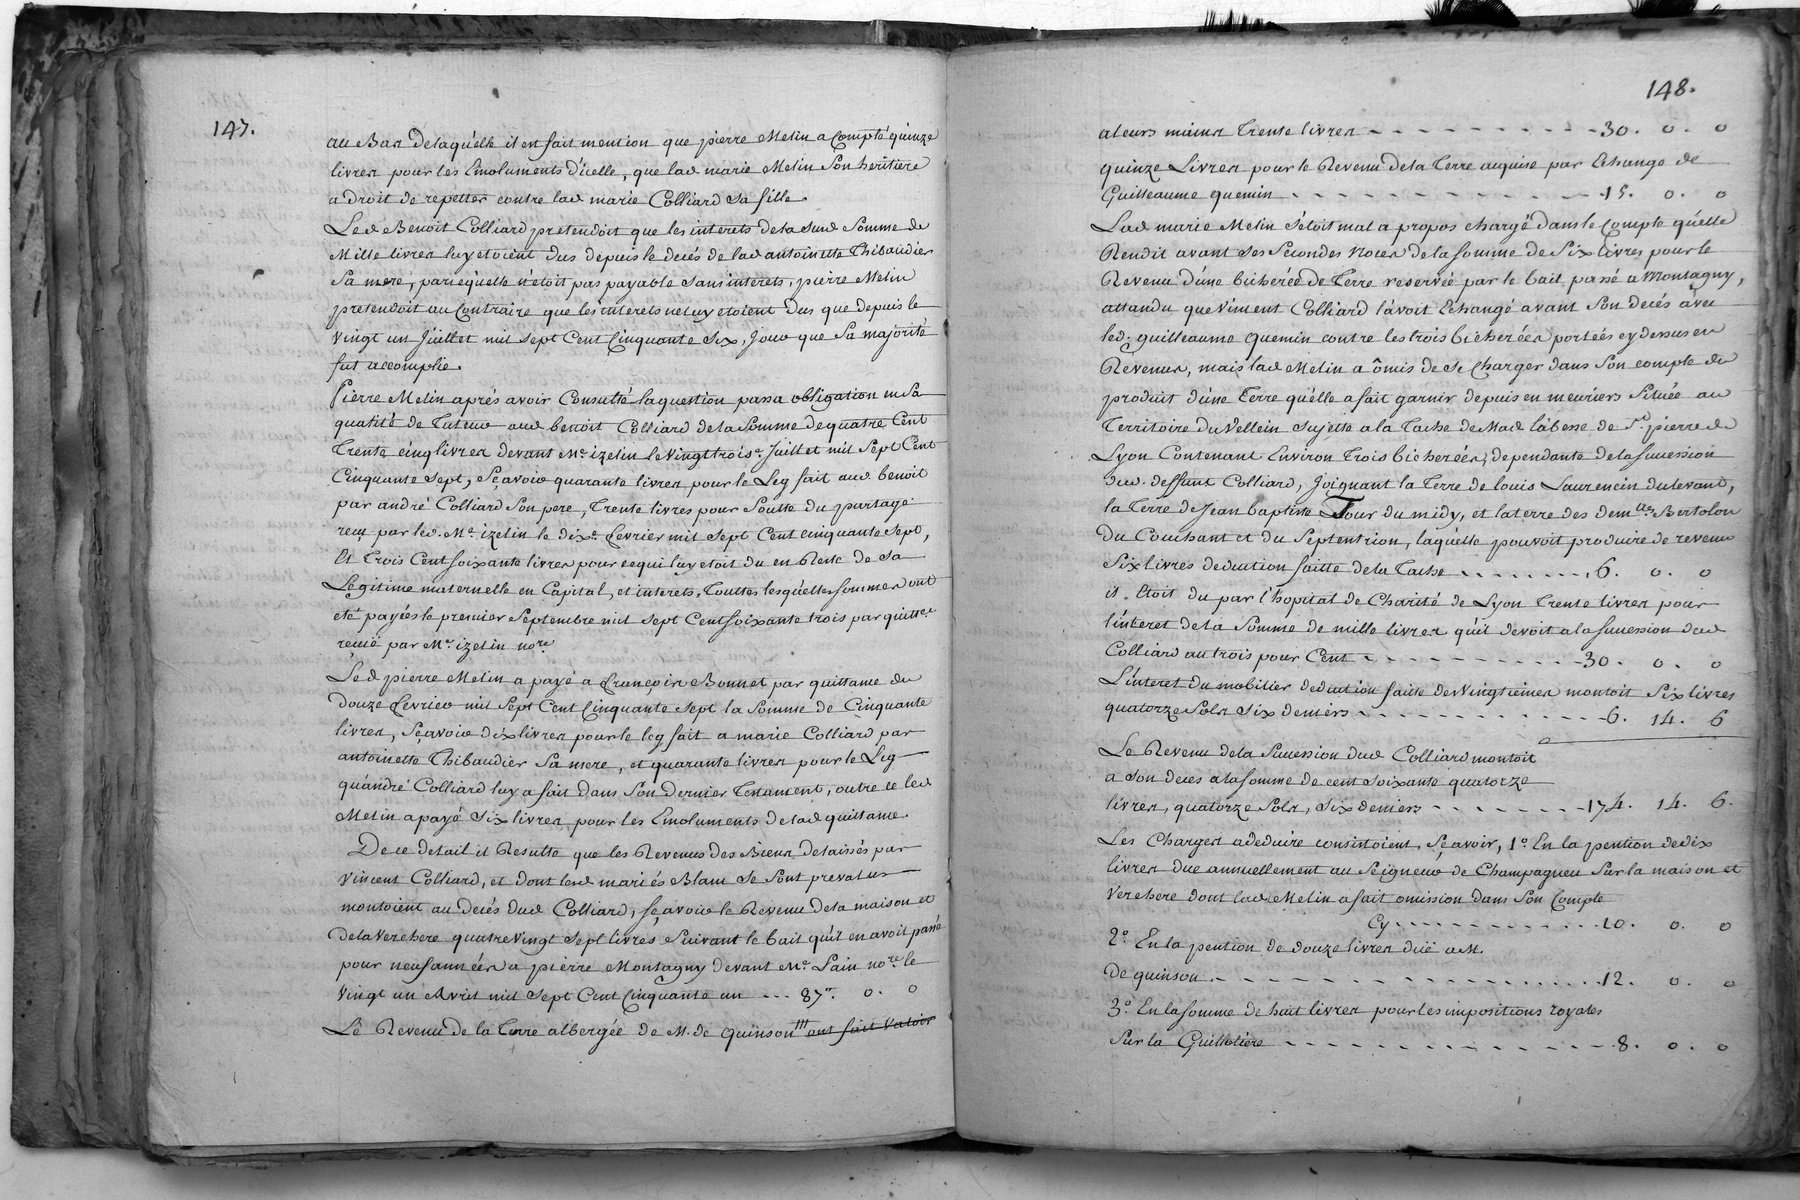 147.
au Bas delaquelle il en fait mention que pierre Melin a Compté quinze
livres pour les Emoluments d'icelle, que lad marie Melin son heritiere
a droit de repetter contre lad marie Colliard sa fille.
Led Benoit Colliard pretendoit que les interets dela susd Somme de
Mille livres luy etoient dus depuis le decés de lad antoinette Thibaudier
Sa mere, parcequ'elle n'etoit pas payable sans interets, pierre Melin
pretendoit au Contraire que les interets ne luy etoient Dus que depuis le
vingt un Juillet mil sept Cent Cinquante Six, Jour que Sa majorité
fut accomplie.
Pierre Melin aprés avoir Consulté laquestion passa obligation en Sa
qualité de Tuteur aud benoit Colliard dela Somme de quatre Cent
Trente cinq livres devant Me. izelin le vingt trois e. Juillet mil Sept Cent
Cinquante sept, Sçavoir quarante livres pour le Leg fait aud benoit
par andré Colliard Son pere, Trente livres pour Soutte du partage
reçu par led. Me. izelin le dixe. fevrier mil sept Cent cinquante sept,
Et Trois Cent soixante livres pour cequi luy etoit du en Reste de sa
Légitime maternelle en Capital, et interets, Touttes lesquelles sommes ont
eté payées le premier Septembre mil sept Cent soixante trois par quittce.
reçuë par Me. izelin nore.
Led pierre Melin a payé a françois Bonnet par quittance du
douze fevrier mil Sept Cent Cinquante sept la Somme de Cinquante
livres, Sçavoir dix livres pour le leg fait a marie Colliard par
antoinette Thibaudier Sa mere, et quarante livres pour le Leg
qu'andré Colliard luy a fait dans Son dernier Testament, outre ce led
Melin a payé Six livres pour les Emoluments de lad quittance.
De ce detail il Resulte que les Revenus des Biens delaissés par
vincent Colliard, et dont lesd mariés Blanc se sont prevalus
montoient au decés dud Colliard, sçavoir le Revenu dela maison et
dela verchere quatre vingt sept livres suivant le bail qu'il en avoit passé
pour neuf années a pierre Montagny devant Me. Pain nore. le
vingt un Avril mil sept Cent Cinquante un --- 87. 0. 0
Le Revenu de la Terre albergée de M. de quinson ont fait valoir
148.
a leurs mains Trente livres - - - - - - - - - 30. 0. 0
quinze Livres pour le Revenu dela Terre acquise par Echange de
Guilleaume quemin - - - - - - - - - - - - 15. 0. 0
Lad marie Melin s'etoit mal a propos chargé dans le Compte qu'elle
Rendit avant ses Secondes Noces dela somme de Six livres pour le
Revenu d'une bicherée de Terre reservée par le bail passé a Montagny,
attandu que vincent Colliard l'avoit Echangé avant Son decés avec
led. guilleaume quemin contre les trois bicherées portées cy dessus en
Revenus, mais lad Melin a ômis de se Charger dans Son compte du
produit d'une Terre qu'elle a fait garnir depuis en meuriers Située au
Territoire du Vellein sujette a la Tache de Mad l'abesse de St. pierre de
Lyon Contenant Environ Trois bicherées, dependante dela succession
dud. deffunt Colliard, Joignant la Terre de louis Laurencin dulevant,
la Terre de Jean baptiste Tour du midy, et la terre des demlles Bertolon
du Couchant et du Septentrion, laquelle pouvoit produire de revenu
Six livres deduction faitte dela Tache - - - - - - - 6. 0. 0
il. Etoit du par l'hopital de Charité de Lyon Trente livres pour
l'interet dela Somme de mille livres qu'il devoit a la succession dud
Colliard au trois pour Cent - - - - - - - - - 30. 0. 0
L'interet du mobilier deduction faitte des vingtiemes montoit Six livres
quatorze Sols Six deniers - - - - - - - - - 6. 14. 6
Le Revenu dela Succession dud Colliard montoit
a Son deces a la somme de cent soixante quatorze
livres, quatorze Sols, Six deniers - - - - - - - 174. 14. 6.
Les Charges a deduire consistoient, Sçavoir, 1o. En la pention de dix
livres due annuellement au Seigneur de Champagneu Sur la maison et
verchere dont lad Melin a fait omission dans Son Compte
Cy - - - - - - - - - - 10. 0. 0
2o. En la pention de douze livres duë a M.
De quinson - - - - - - - - - - - - - - 12. 0. 0
3o. En la somme de huit livres pour les impositions royales
Sur la Guillotière - - - - - - - - - - - - 8. 0. 0